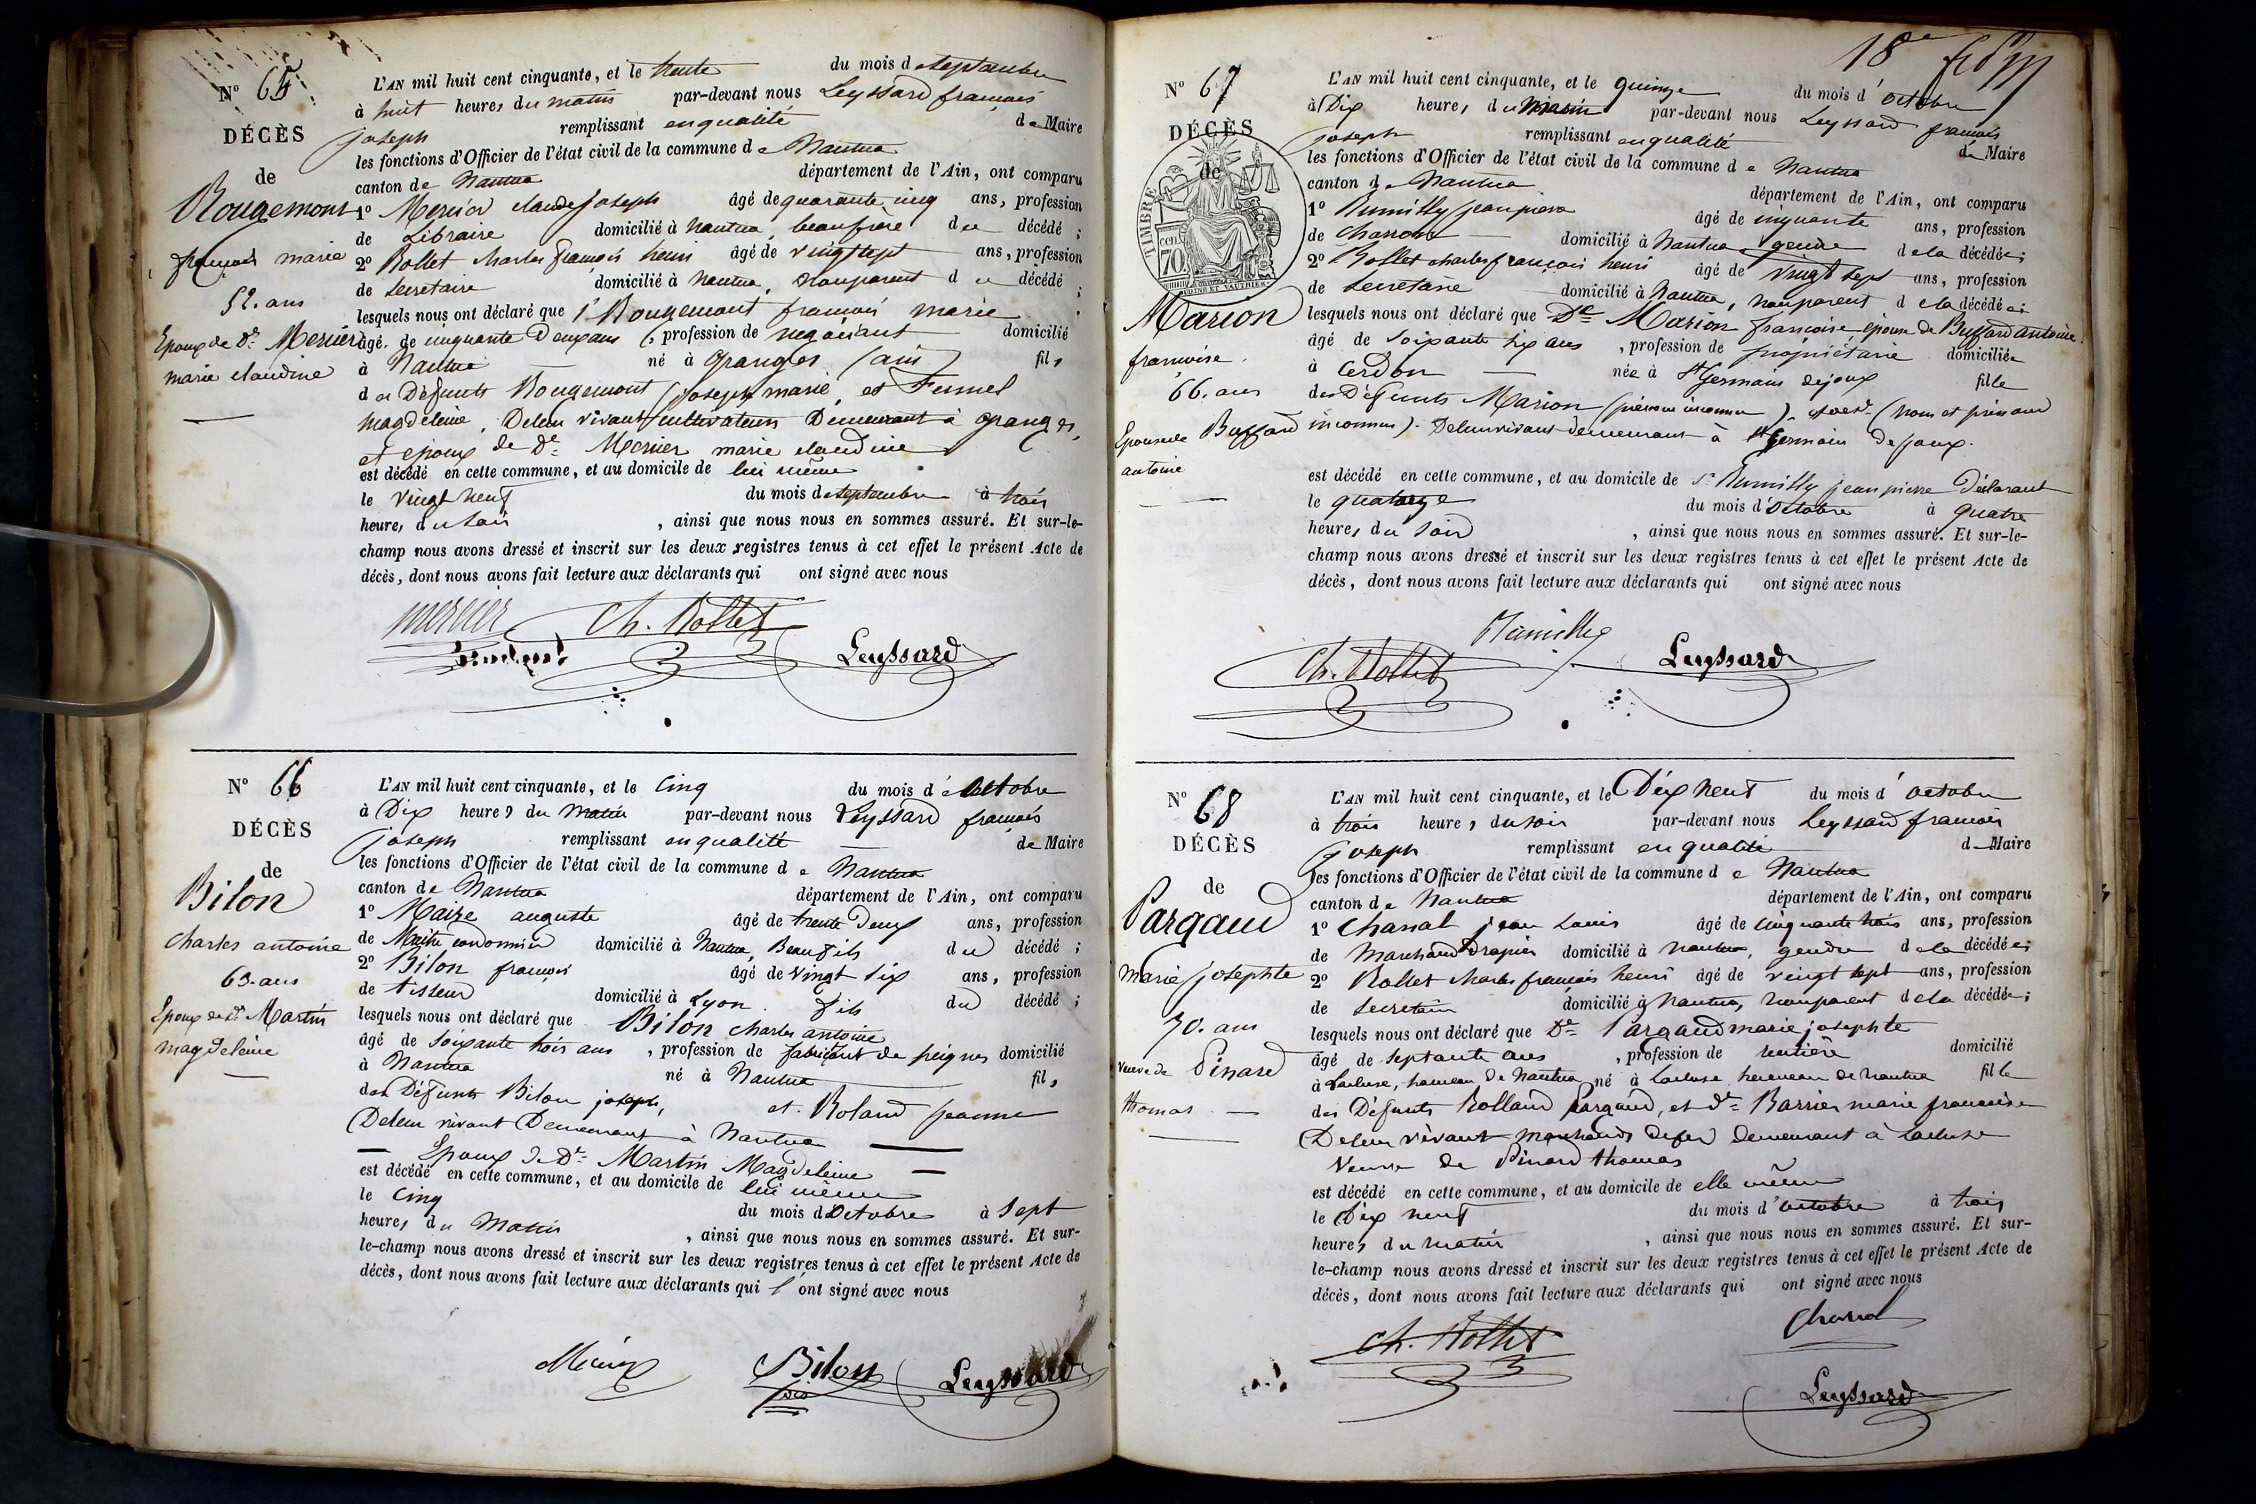 N° 65
DÉCÈS
de
Rougemont
françois marie
52. ans
Epoux de De Mercier
marie claudine
L'AN mil huit cent cinquante, et le trente du mois de septembre
à huit heures du matin par-devant nous Leyssard françois
joseph remplissant en qualité de Maire
les fonctions d'Officier de l'état civil de la commune de Nantua
canton de Nantua département de l'Ain, ont comparu
1° Mercier claude joseph âgé de quarante cinq ans, profession
de Libraire domicilié à Nantua, beaufrère du décédé ;
2° Rollet charles françois henri âgé de vingt sept ans, profession
de Secretaire domicilié à Nantua, nonparent du décédé ;
lesquels nous ont déclaré que Sr Rougemont françois marie
âgé de cinquante deux ans, profession de negociant domicilié
à Nantua né à Granges (ain) fils
des Défunts Rougemont joseph marie, et Fennel
magdeleine, Deleur vivant cultivateurs Demeurant à Granges,
et époux de De Mercier marie claudine
est décédé en cette commune, et au domicile de lui même
le vingt neuf du mois de septembre à trois
heures du soir, ainsi que nous nous en sommes assuré. Et sur-le-
champ nous avons dressé et inscrit sur les deux registres tenus à cet effet le présent Acte de
décès, dont nous avons fait lecture aux déclarants qui ont signé avec nous
mercier Ch. Rollet
Leyssard
N° 66
DÉCÈS
de
Bilon
charles antoine
63. ans
Epoux de De Martin
magdeleine
L'AN mil huit cent cinquante, et le cinq du mois d'octobre
à Dix heures du matin par-devant nous Leyssard françois
joseph remplissant en qualité de Maire
les fonctions d'Officier de l'état civil de la commune de Nantua
canton de Nantua département de l'Ain, ont comparu
1° Maire auguste âgé de trente Deux ans, profession
de Maître cordonnier domicilié à Nantua, Beaufils du décédé ;
2° Bilon françois âgé de vingt six ans, profession
de tisseur domicilié à Lyon fils du décédé ;
lesquels nous ont déclaré que Bilon charles antoine
âgé de soixante trois ans, profession de fabricant de peignes domicilié
à Nantua né à Nantua fils
des Défunts Bilon joseph, et Roland jeanne
Deleur vivant Demeurant à Nantua
Epoux de De Martin Magdeleine
est décédé en cette commune, et au domicile de lui même
le cinq du mois d'octobre à sept
heures du matin, ainsi que nous nous en sommes assuré. Et sur-
le-champ nous avons dressé et inscrit sur les deux registres tenus à cet effet le présent Acte de
décès, dont nous avons fait lecture aux déclarants qui ont signé avec nous
Bilon Leyssard
18e
N° 67
DÉCÈS
de
TIMBRE
70
Marion
françoise.
66. ans
Epouse de Buffard
antoine
L'AN mil huit cent cinquante, et le quinze du mois d'octobre
à Dix heures du matin par-devant nous Leyssard françois
joseph remplissant en qualité de Maire
les fonctions d'Officier de l'état civil de la commune de Nantua
canton de Nantua département de l'Ain, ont comparu
1° Rumilly jean pierre âgé de cinquante ans, profession
de charron domicilié à Nantua, gendre de la décédée ;
2° Rollet charles françois henri âgé de vingt sept ans, profession
de Secretaire domicilié à Nantua, nonparent de la décédée ;
lesquels nous ont déclaré que De Marion françoise épouse de Buffard antoine.
âgé de soixante six ans, profession de propriétaire domiciliée
à Cerdon née à St Germain dejoux fille
des Défunts Marion (prénom inconnu), et de De (nom et prénom
inconnus). Deleur vivant demeurant à St Germain de joux.
est décédé en cette commune, et au domicile de Sr Rumilly jean pierre Déclarant
le quatorze du mois d'octobre à quatre
heures du soir, ainsi que nous nous en sommes assuré. Et sur-le-
champ nous avons dressé et inscrit sur les deux registres tenus à cet effet le présent Acte de
décès, dont nous avons fait lecture aux déclarants qui ont signé avec nous
Rumilly
Ch. Rollet Leyssard
N° 68
DÉCÈS
de
Pargaud
marie josephte
70. ans
veuve de Pinard
thomas
L'AN mil huit cent cinquante, et le Dix neuf du mois d'octobre
à trois heures du soir par-devant nous Leyssard françois
joseph remplissant en qualité de Maire
les fonctions d'Officier de l'état civil de la commune de Nantua
canton de Nantua département de l'Ain, ont comparu
1° Chanal jean Louis âgé de cinquante trois ans, profession
de Marchand Drapier domicilié à Nantua, gendre de la décédée ;
2° Rollet charles françois henri âgé de vingt sept ans, profession
de Secretaire domicilié à Nantua, nonparent de la décédée ;
lesquels nous ont déclaré que De Pargaud marie josephte
âgé de septante ans, profession de rentière domicilié
à Lacluse, hameau de Nantua né à Lacluse hameau de nantua fille
des Défunts Rolland Pargaud, et De Barrier marie françoise
Deleur vivant marchands defer demeurant à Lacluse
Veuve de Pinard thomas
est décédé en cette commune, et au domicile de elle même
le Dix neuf du mois d'octobre à trois
heures du matin, ainsi que nous nous en sommes assuré. Et sur-
le-champ nous avons dressé et inscrit sur les deux registres tenus à cet effet le présent Acte de
décès, dont nous avons fait lecture aux déclarants qui ont signé avec nous
Ch. Rollet Chanal
Leyssard